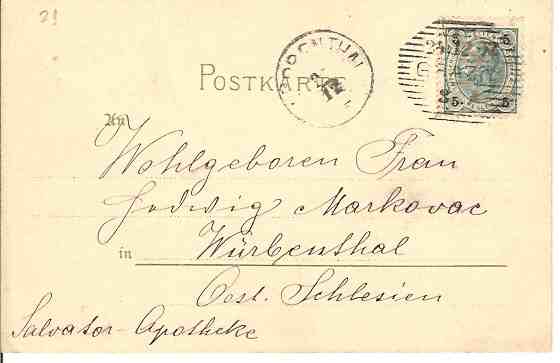 21
POSTKARTE
An
Wohlgeboren Frau
Hedwig Markovac
in Würbenthal
Oest. Schlesien
Salvator-Apotheke
5 5